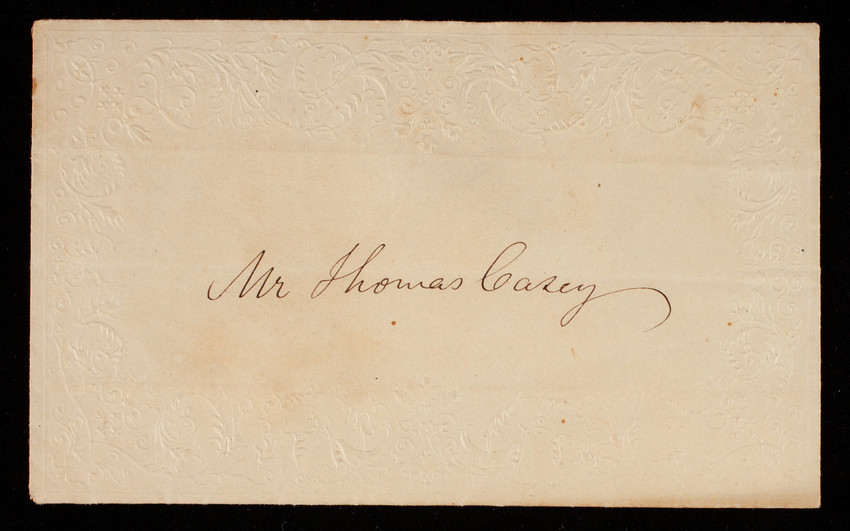 Mr Thomas Casey